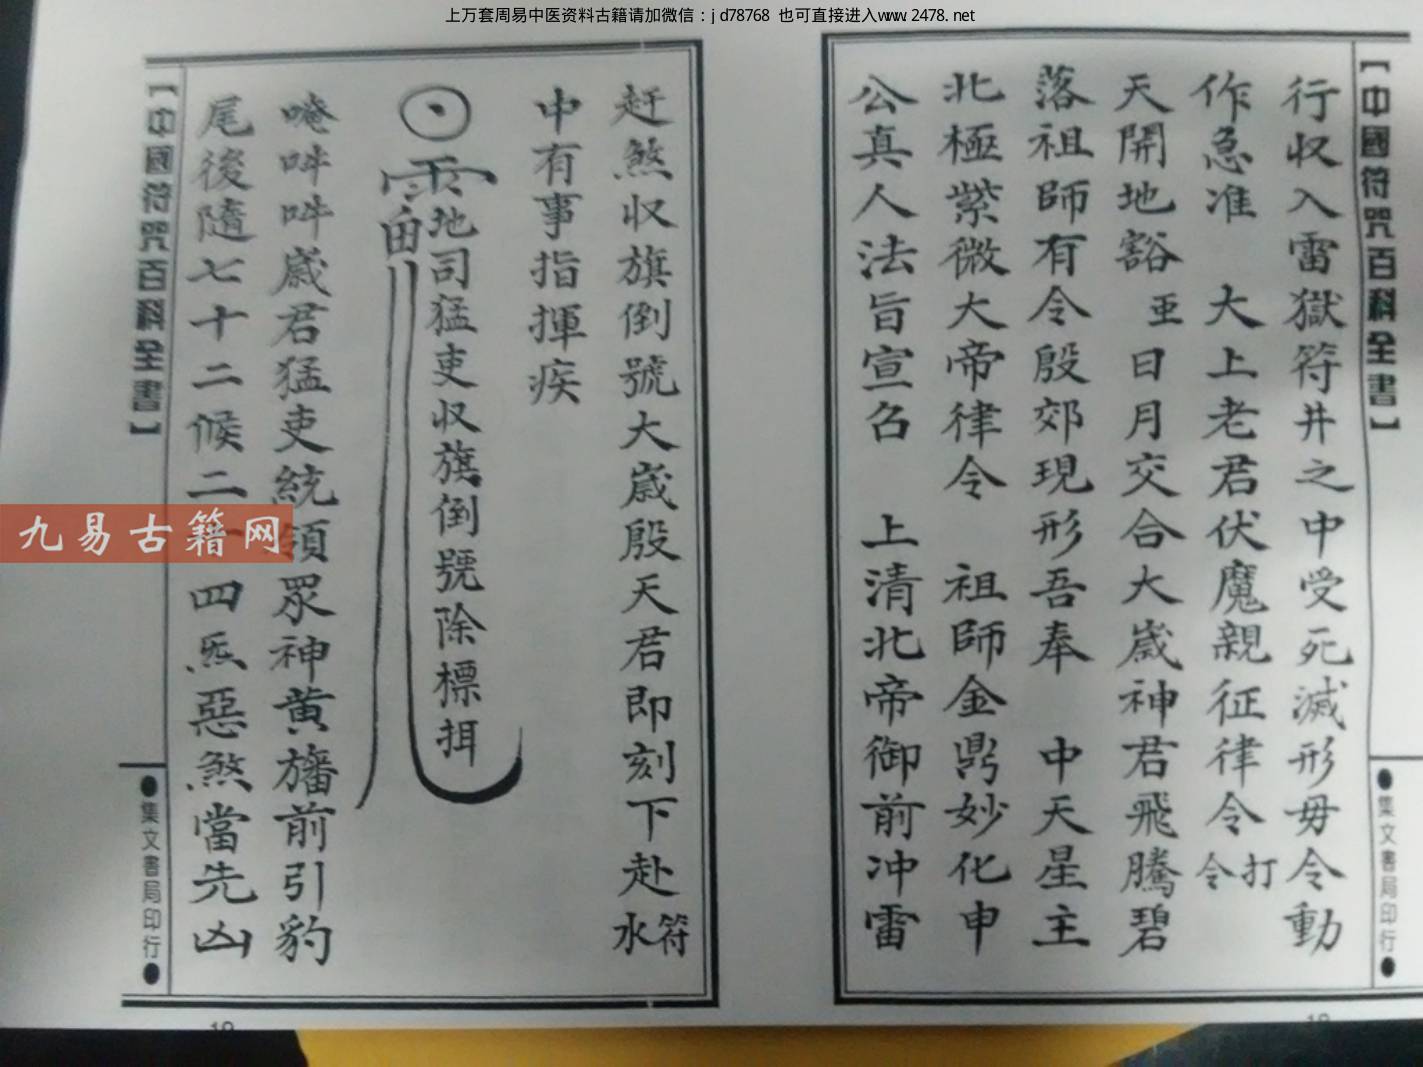 上万套周易中医资料古籍请加微信：jd78768 也可直接进入www.2478.net
【中國符咒百科全書】
●集文書局印行●
行収入雷獄符井之中受死滅形毋令動
作急准 大上老君伏魔親征律令打令
天開地豁 亜日月交合大嵗神君飛騰碧
落祖師有令殷郊現形吾奉 中天星主
北極紫微大帝律令 祖師金鼎妙化申
公真人法旨宣召 上清北帝御前冲雷
赶煞収旗倒號大嵗殷天君即刻下赴水符
中有事指揮疾
地司猛吏収旗倒號除標揖
唵吽吽嵗君猛吏統領眾神黄旛前引豹
尾後隨七十二候二 四炁惡煞當先凶
【中國符咒百科全書】
●集文書局印行●
九易古籍网